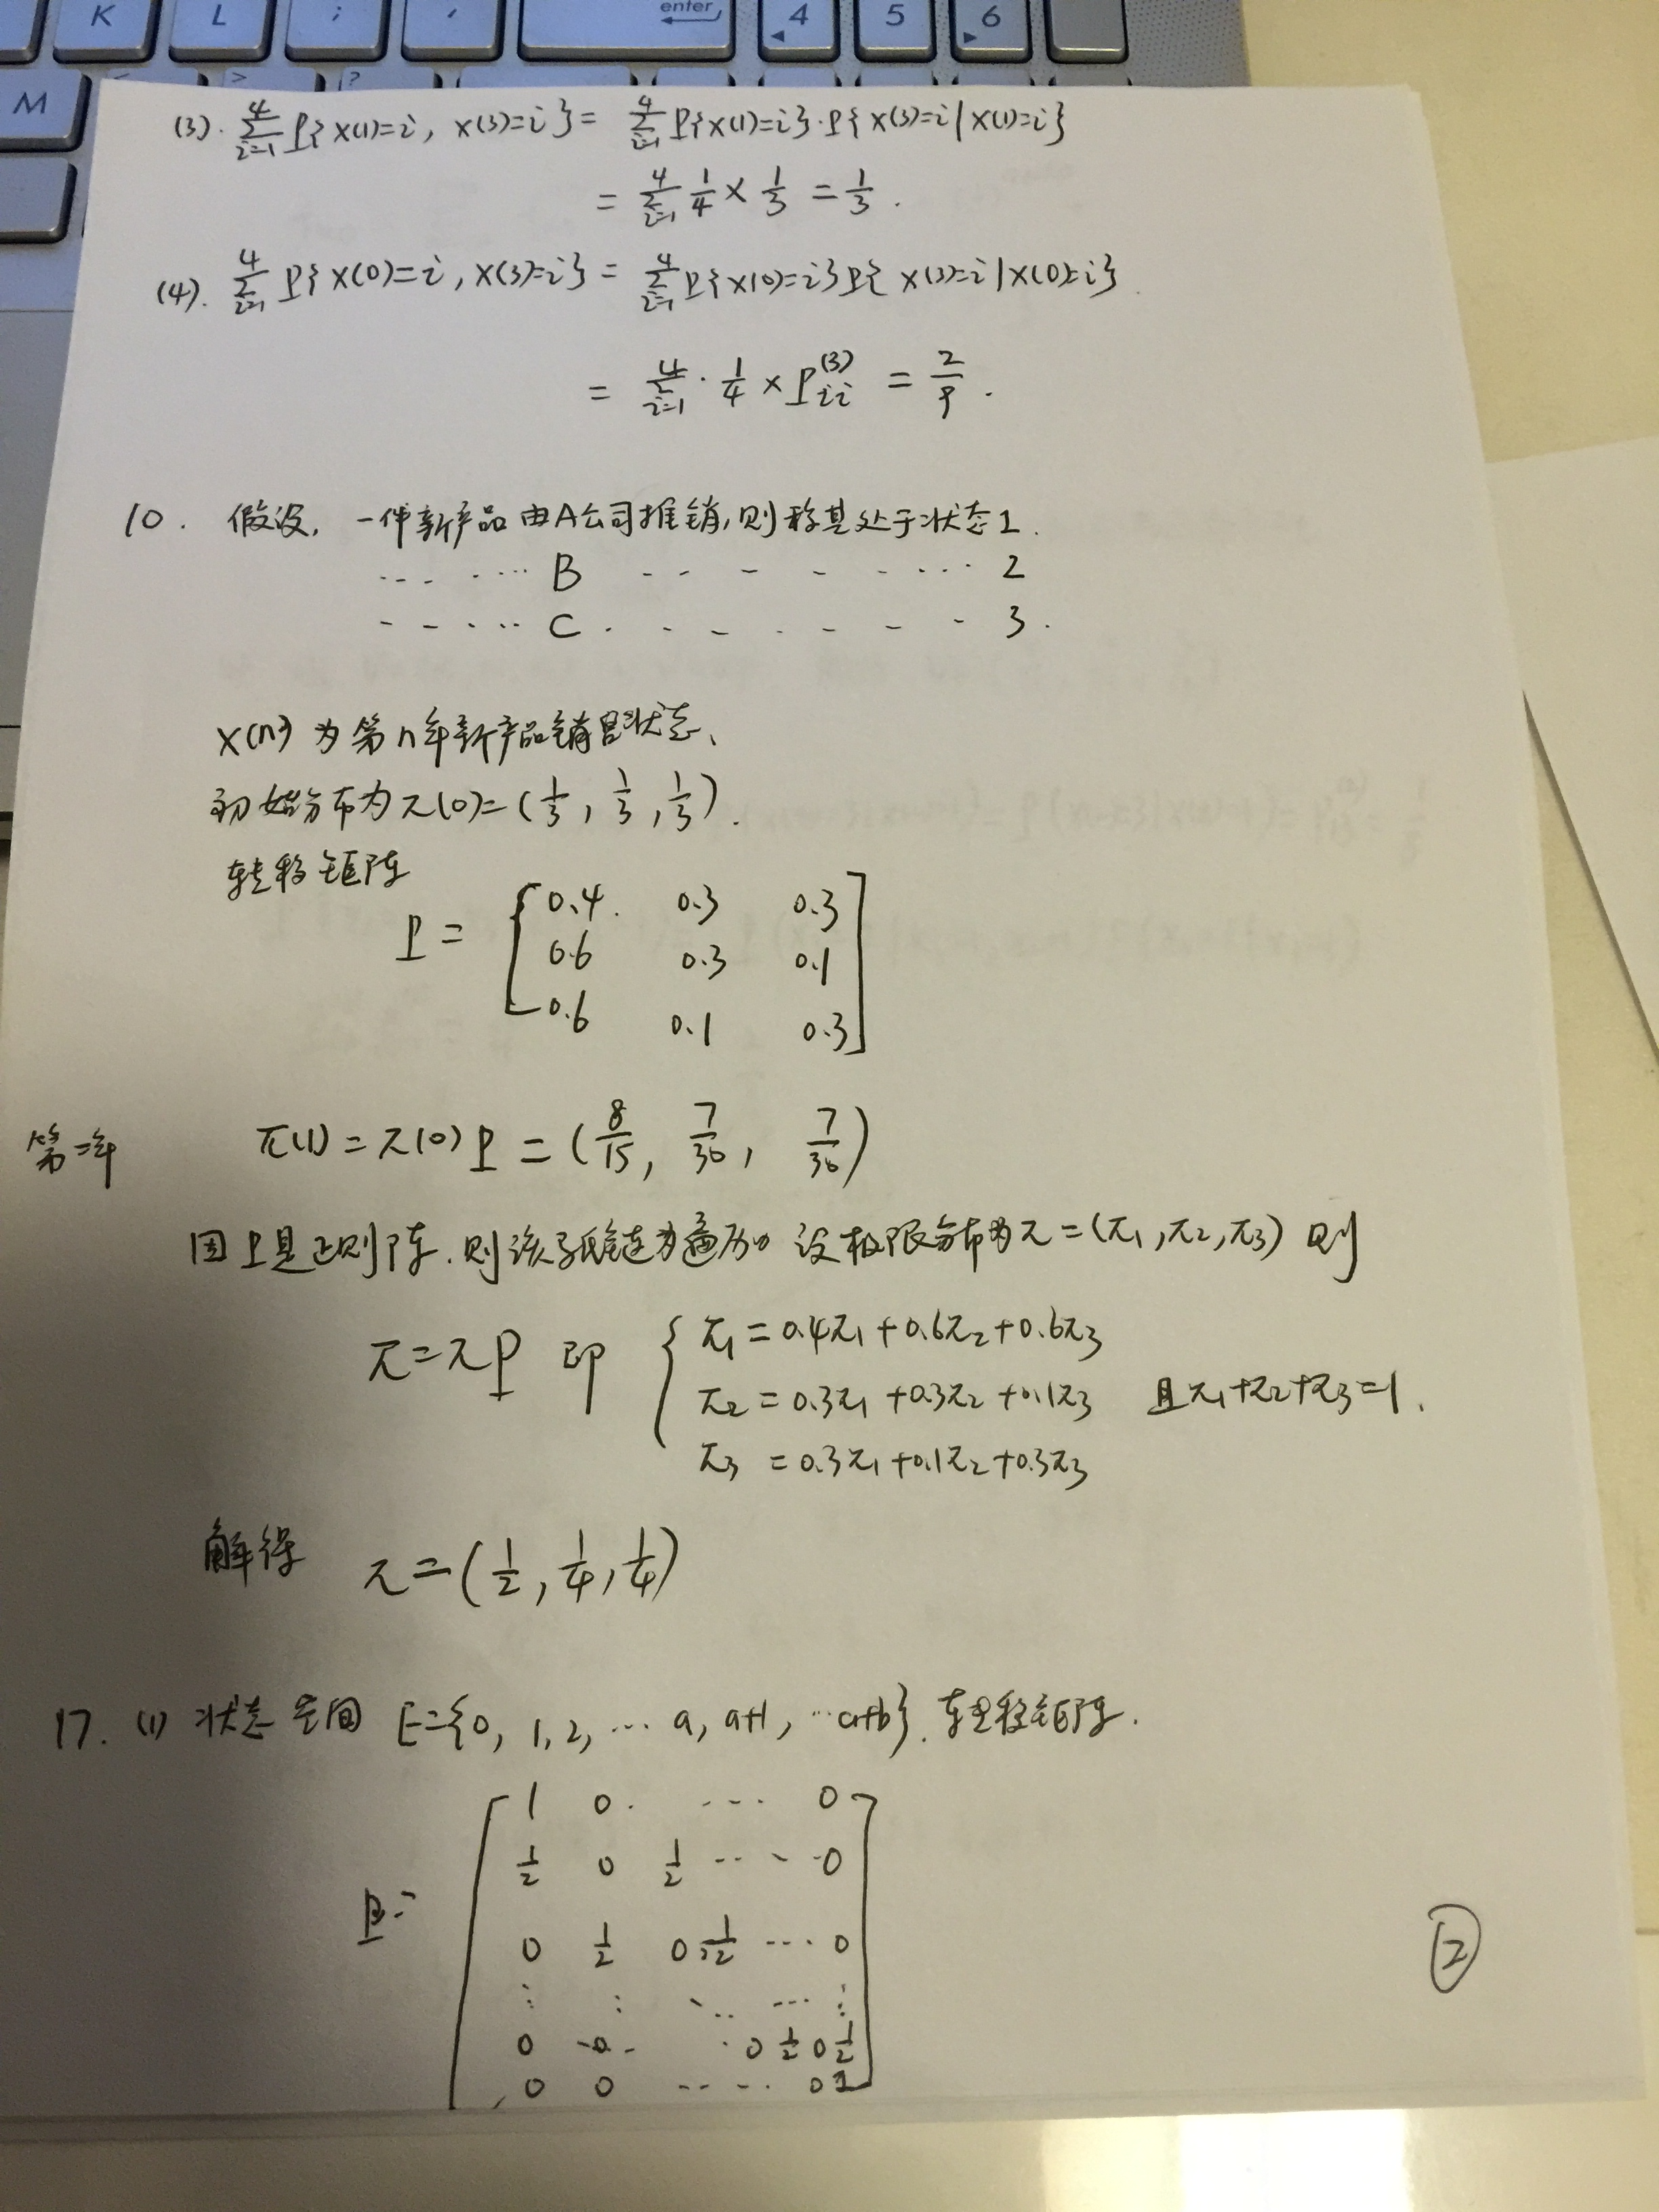 K L ; ' enter 4 5 6
M < > ?
(3). ∑_{i=1}^{4} P{X(1)=i, X(3)=i} = ∑_{i=1}^{4} P{X(1)=i}·P{X(3)=i|X(1)=i}
= ∑_{i=1}^{4} 1/4 × 1/3 = 1/3.
(4). ∑_{i=1}^{4} P{X(0)=i, X(3)=i} = ∑_{i=1}^{4} P{X(0)=i}P{X(3)=i|X(0)=i}.
= ∑_{i=1}^{4} · 1/4 × P_{ii}^{(3)} = 2/9.
10. 假设, 一件新产品由A公司推销,则称其处于状态1.
... .... B - - - - - .... 2
- - - ... C . - - . - - - 3.
X(n) 为第n年新产品销售状态、
初始分布为π(0)=(1/3, 1/3, 1/3).
转移矩阵
P = [0.4. 0.3 0.3
0.6 0.3 0.1
0.6 0.1 0.3]
第二年 π(1)=π(0)P = (8/15, 7/30, 7/30)
因P是正则阵.则该马氏链为遍历的 设极限分布为π=(π1,π2,π3) 则
π=πP 即 { π1=0.4π1+0.6π2+0.6π3
π2=0.3π1+0.3π2+0.1π3 且π1+π2+π3=1.
π3=0.3π1+0.1π2+0.3π3
解得 π=(1/2, 1/4, 1/4)
17. (1) 状态空间 E={0, 1, 2, ... a, a+1, ... a+b}. 转移矩阵.
P= [1 0. ... 0
1/2 0 1/2 ... 0
0 1/2 0 1/2 ... 0
⋮ ⋮ ⋱ ... ⋮
0 0 . 0 1/2 0 1/2
0 0 ... 0 1]
②